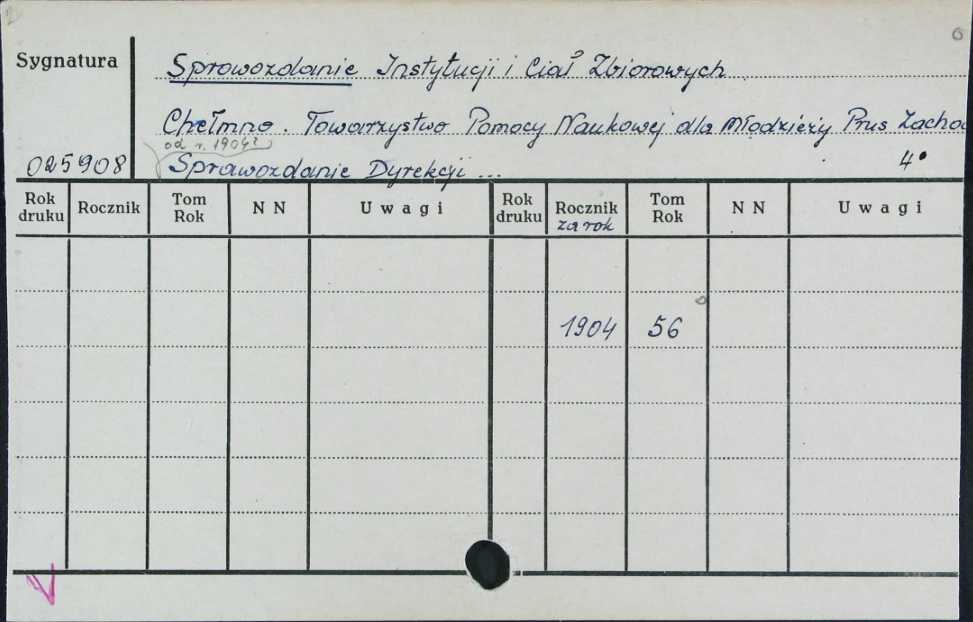 Sygnatura
Sprawozdanie Instytucji i Ciał Zbiorowych
Chełmno. Towarzystwo Pomocy Naukowej dla Młodzieży Prus Zacho
od r. 1904?
025908 Sprawozdanie Dyrekcji ... 4°
Rok druku Rocznik Tom Rok NN Uwagi Rok druku Rocznik za rok Tom Rok NN Uwagi
1904 56